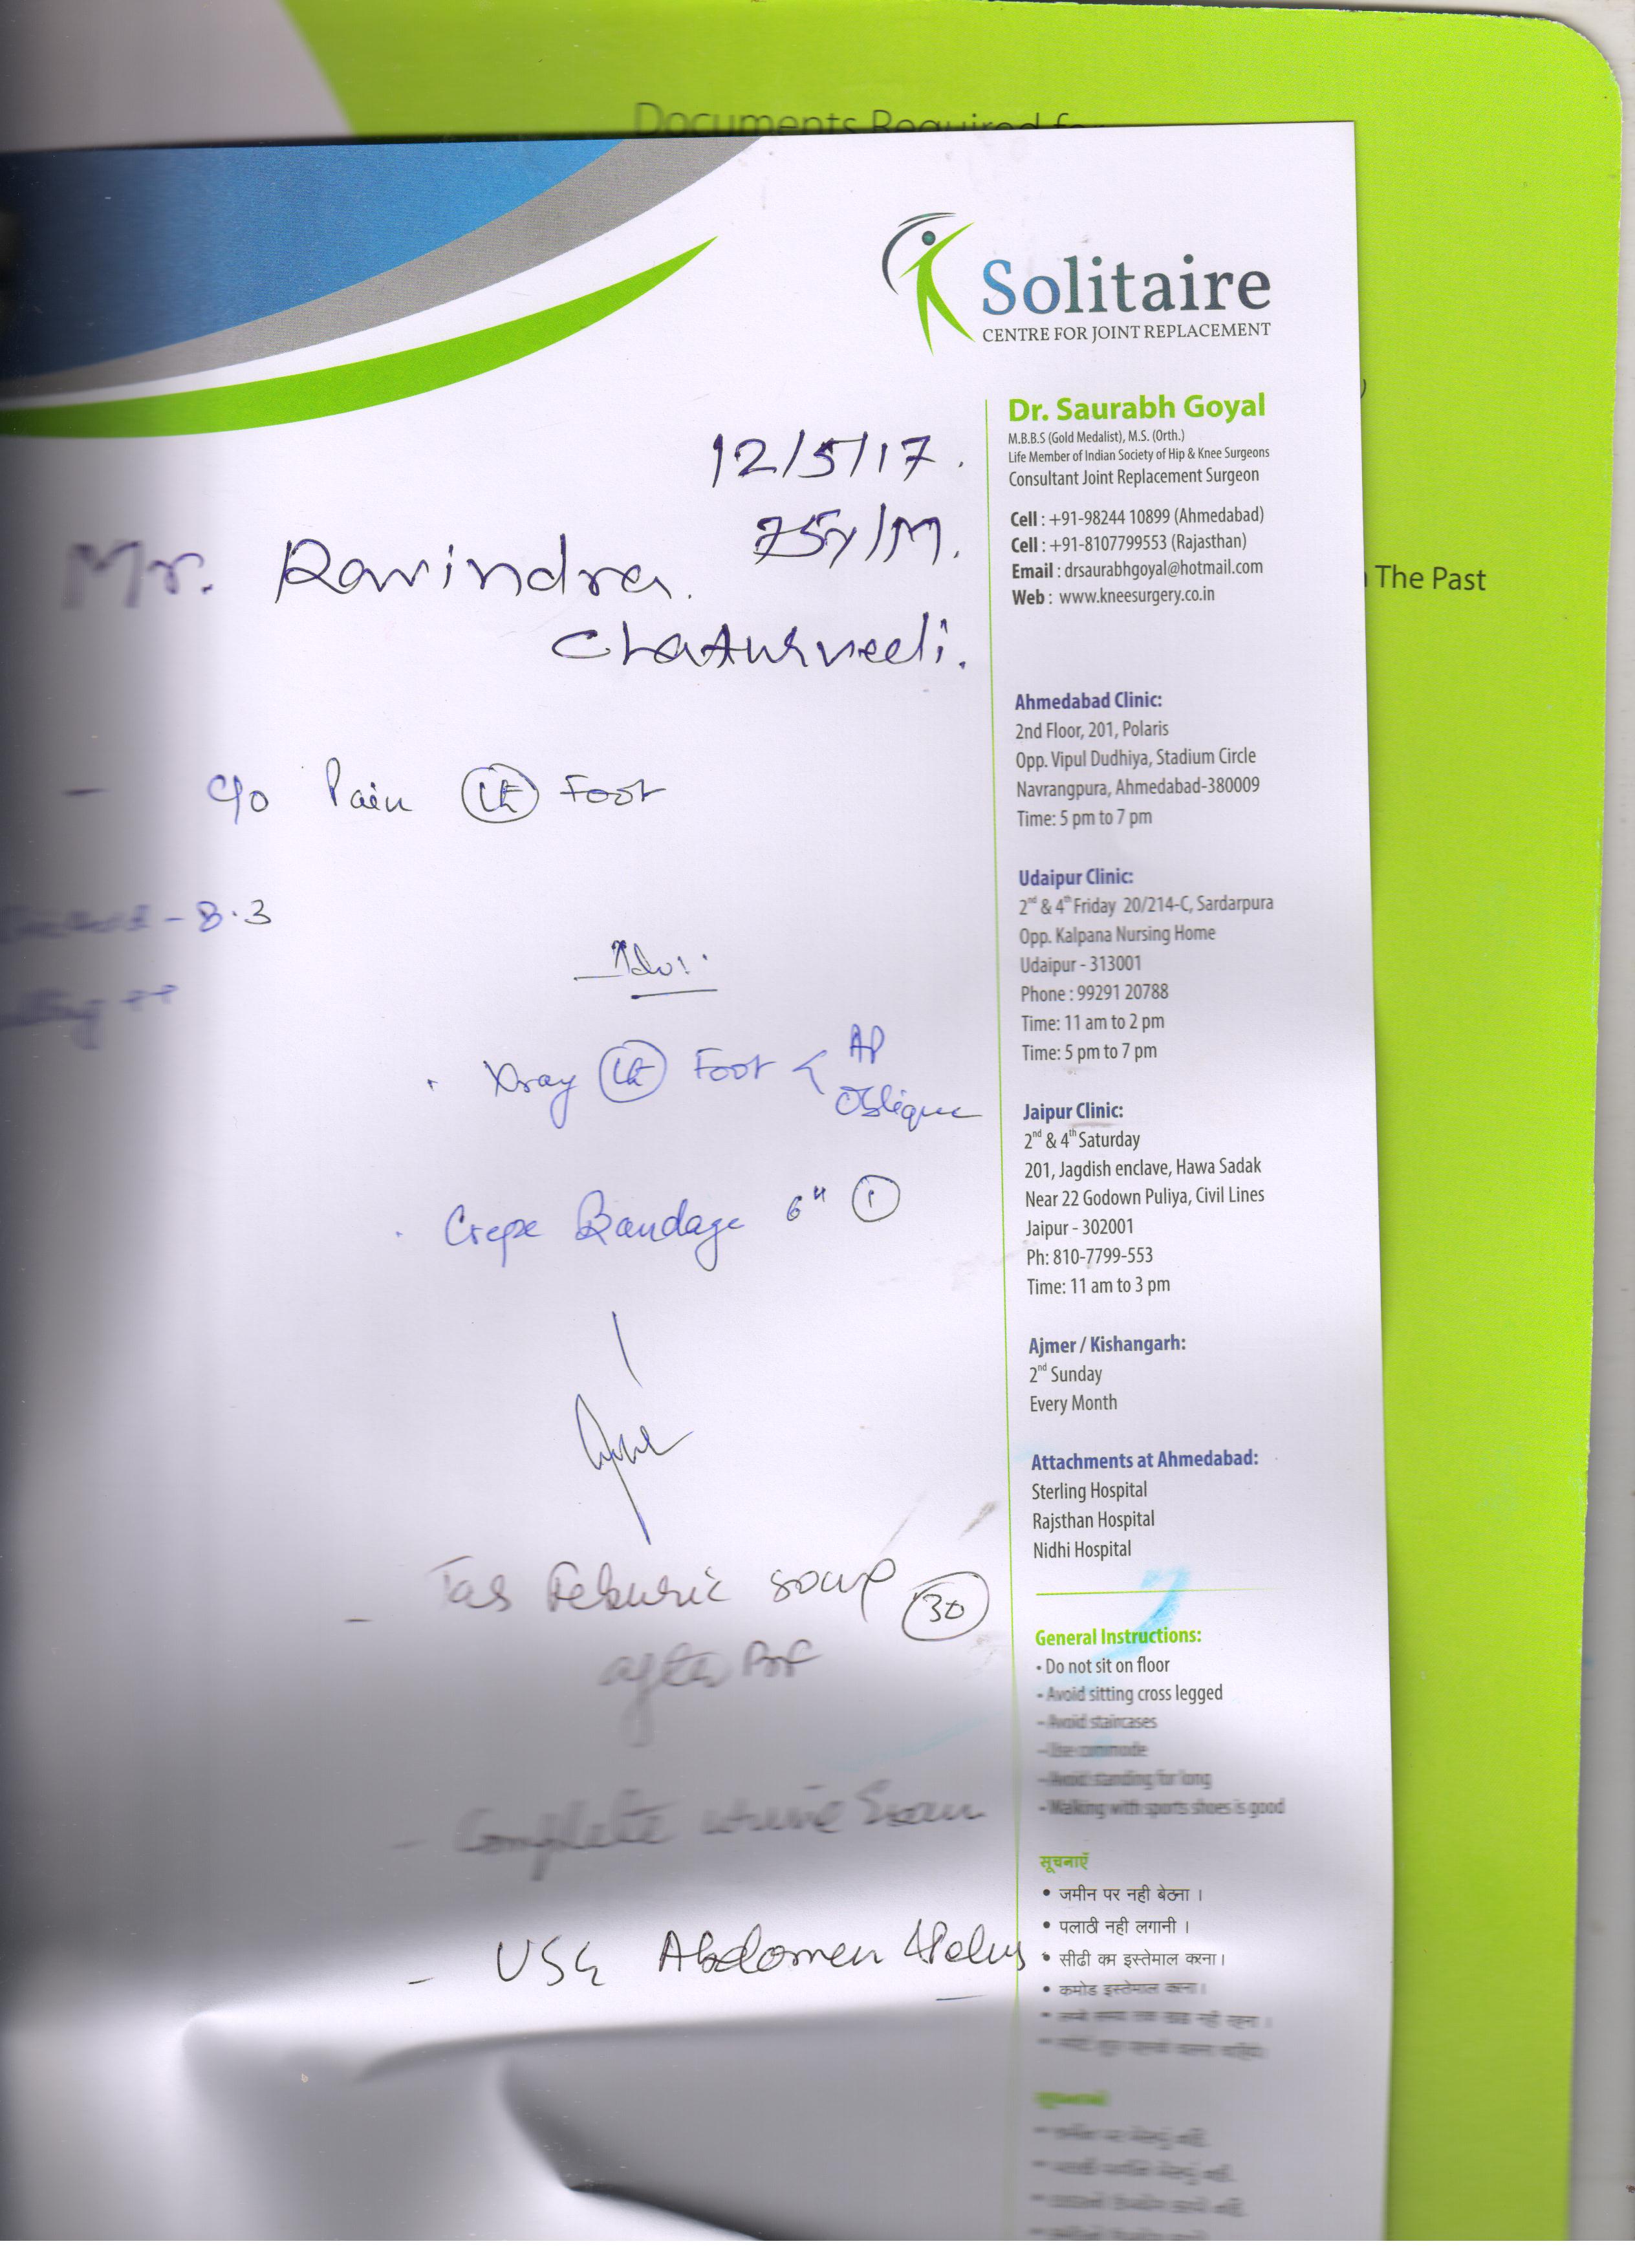 Documents Required for
Solitaire
CENTRE FOR JOINT REPLACEMENT
Dr. Saurabh Goyal
M.B.B.S (Gold Medalist), M.S. (Orth.)
Life Member of Indian Society of Hip & Knee Surgeons
Consultant Joint Replacement Surgeon
Cell : +91-98244 10899 (Ahmedabad)
Cell : +91-8107799553 (Rajasthan)
Email : drsaurabhgoyal@hotmail.com
Web : www.kneesurgery.co.in
The Past
12/5/17.
75y/M.
Mr. Ravindra
Chaturvedi.
- c/o Pain Lt Foot
- 8.3
++
Adv:
. Xray Lt Foot < AP
Oblique
. Crepe Bandage 6" 1
- Tab Feburic 30
after
- Complete urine Exam
- USG Abdomen
Ahmedabad Clinic:
2nd Floor, 201, Polaris
Opp. Vipul Dudhiya, Stadium Circle
Navrangpura, Ahmedabad-380009
Time: 5 pm to 7 pm
Udaipur Clinic:
2nd & 4th Friday 20/214-C, Sardarpura
Opp. Kalpana Nursing Home
Udaipur - 313001
Phone : 99291 20788
Time: 11 am to 2 pm
Time: 5 pm to 7 pm
Jaipur Clinic:
2nd & 4th Saturday
201, Jagdish enclave, Hawa Sadak
Near 22 Godown Puliya, Civil Lines
Jaipur - 302001
Ph: 810-7799-553
Time: 11 am to 3 pm
Ajmer / Kishangarh:
2nd Sunday
Every Month
Attachments at Ahmedabad:
Sterling Hospital
Rajsthan Hospital
Nidhi Hospital
General Instructions:
- Do not sit on floor
- Avoid sitting cross legged
- Avoid staircases
- Use commode
- Avoid standing for long
- Walking with sports shoes is good
सूचनाएँ
• जमीन पर नही बेठना ।
• पलाठी नही लगानी ।
• सीढी कम इस्तेमाल करना।
• कमोड इस्तेमाल करना।